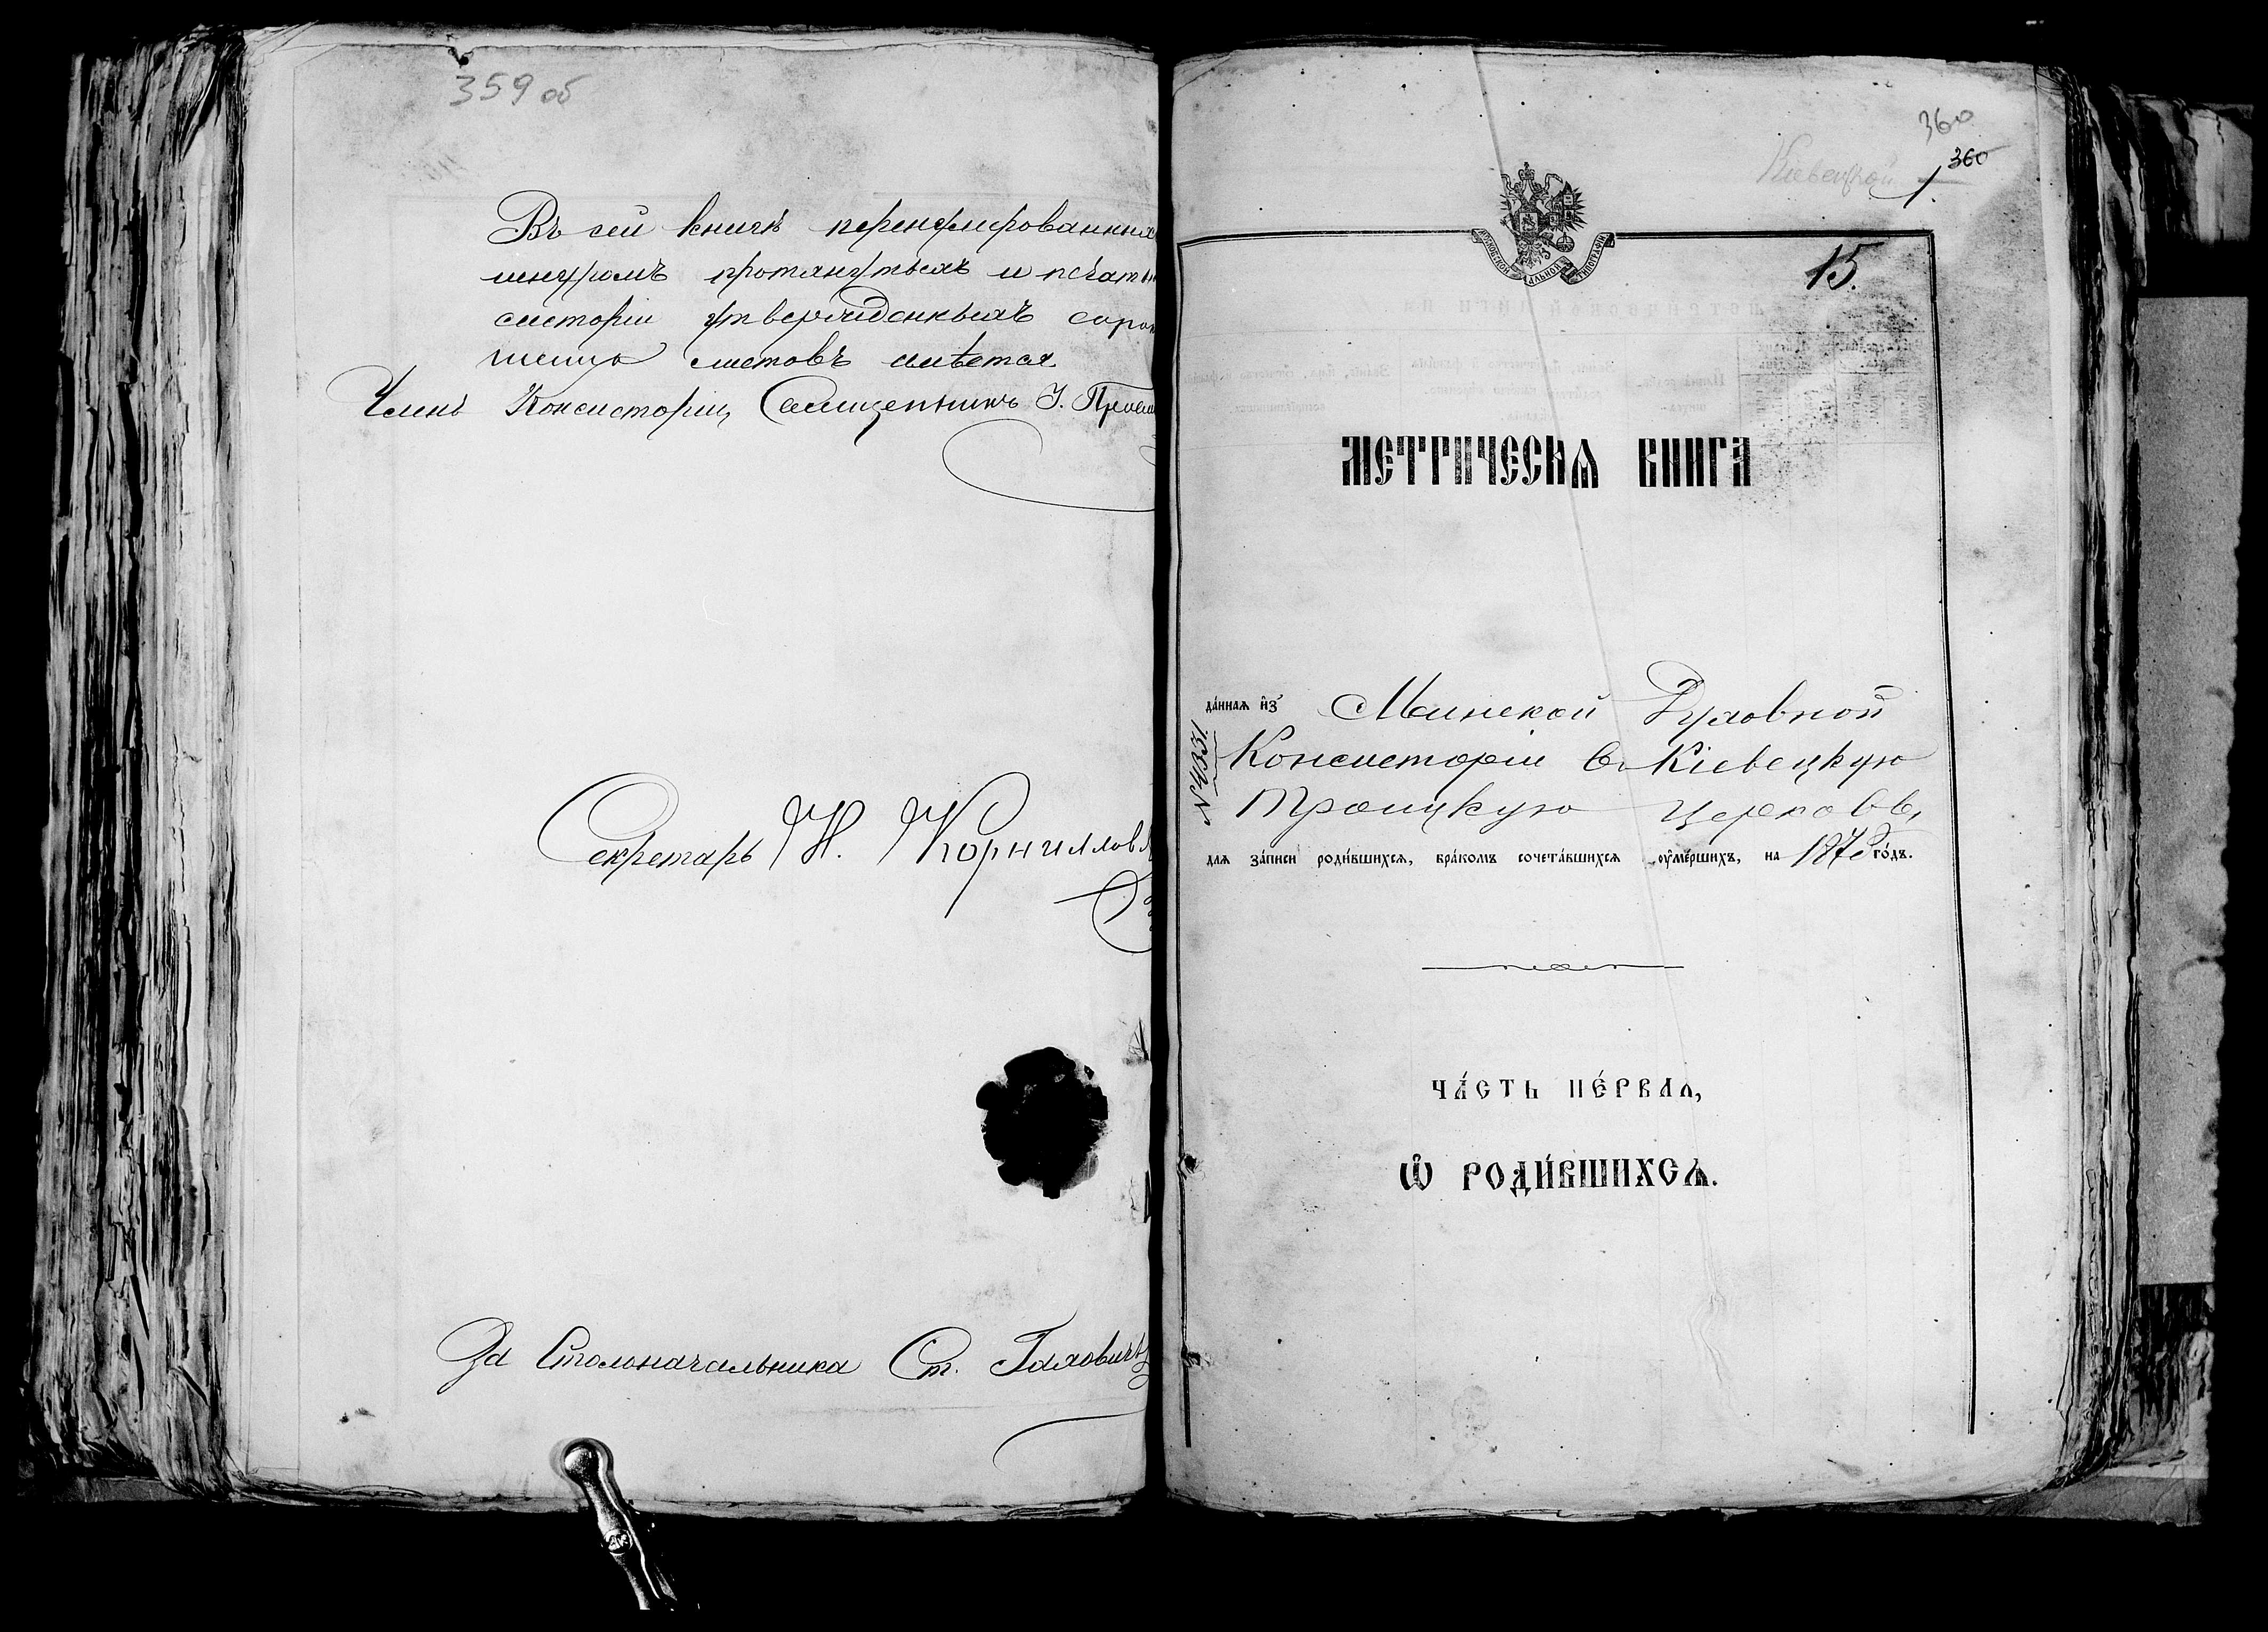 359 об
Въ сей книгѣ перенумерованныхъ
шнуромъ протянутыхъ и печатью
систоріи утвержденныхъ сорок
листовъ имѣется
Членъ Консисторіи, Священникъ І.
Секретарь Н. Корнилов
За Столоначальника Ст.
360
360
Кіевецкой 1.
15.
МЕТРИЧЕСКАѦ КНИГА
да́ннаѧ и҆з̾ Минской Духовной
Консисторіи въ Кіевецкую
Троицкую церковь,
№ 4331.
для за́писи роди́вшихсѧ, бра́комъ сочета́вшихсѧ оу҆ме́ршихъ, на го́дъ.
ЧА́СТЬ ПЕ́РВАѦ,
Ѡ҆ РОДИ́ВШИХСѦ.